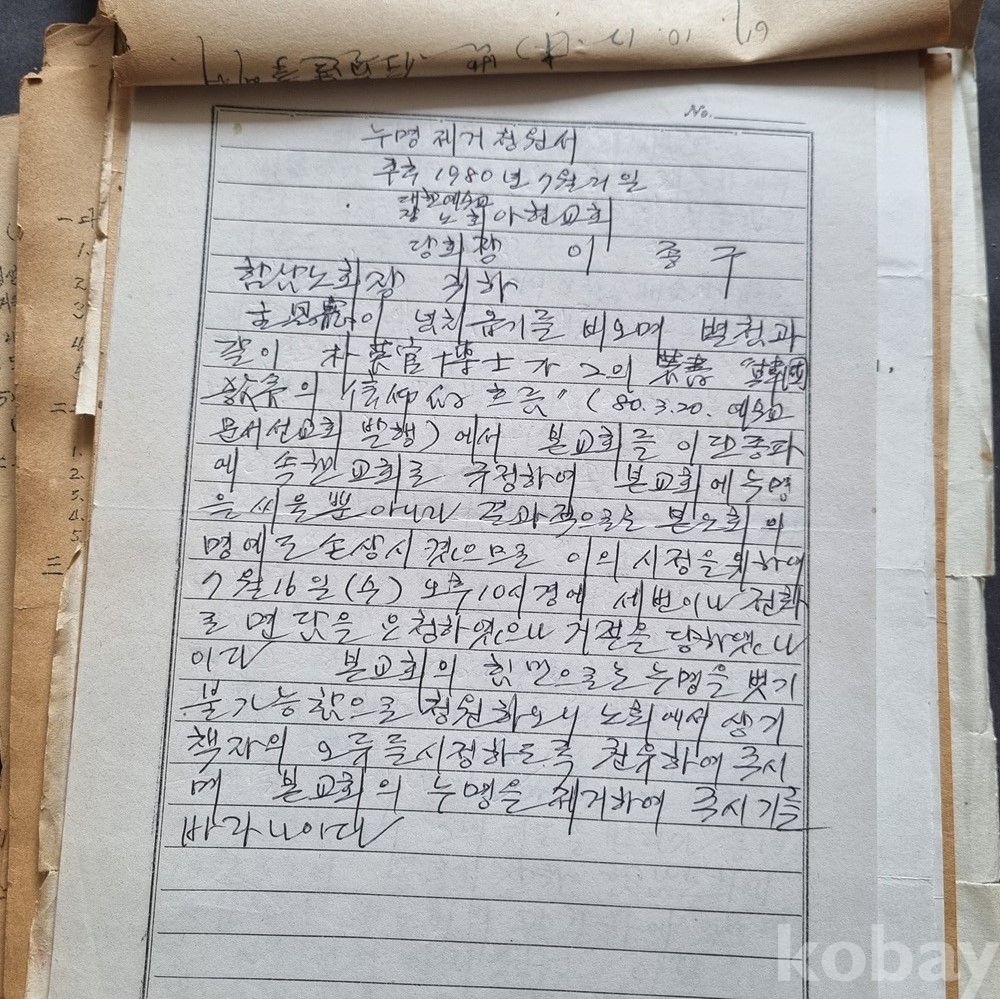 No.
누명 제거 청원서
주후 1980년 7월 21일
대한예수교
장 노회 아현교회
당회장 이 종 구
함남노회장 귀하
主恩寵이 넘치옵기를 비오며 별첨과
같이 朴 官 博士가 그의 著書 "韓國
敎會의 信仰的 흐름" (80.3.20. 예수교
문서선교회 발행)에서 본교회를 이단종파
에 속한교회로 규정하여 본교회에 누명
을 씨울뿐 아니라 결과적으로는 본노회의
명예도 손상시켰으므로 이의 시정을 위하여
7월16일(수) 오후10시경에 세번이나 전화
로 면담을 요청하였으나 거절을 당하였나
이다 본교회의 힘만으로는 누명을 벗기
불가능함으로 청원하오니 노회에서 상기
책자의 오류를 시정하도록 권유하여 주시
며 본교회의 누명을 제거하여 주시기를
바라나이다
一
1.
2.
3.
4.
5
二.
1.
2.
3.
4.
5
三
kobay